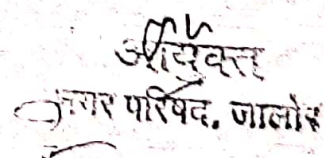 आयुक्त
नगर परिषद, जालोर